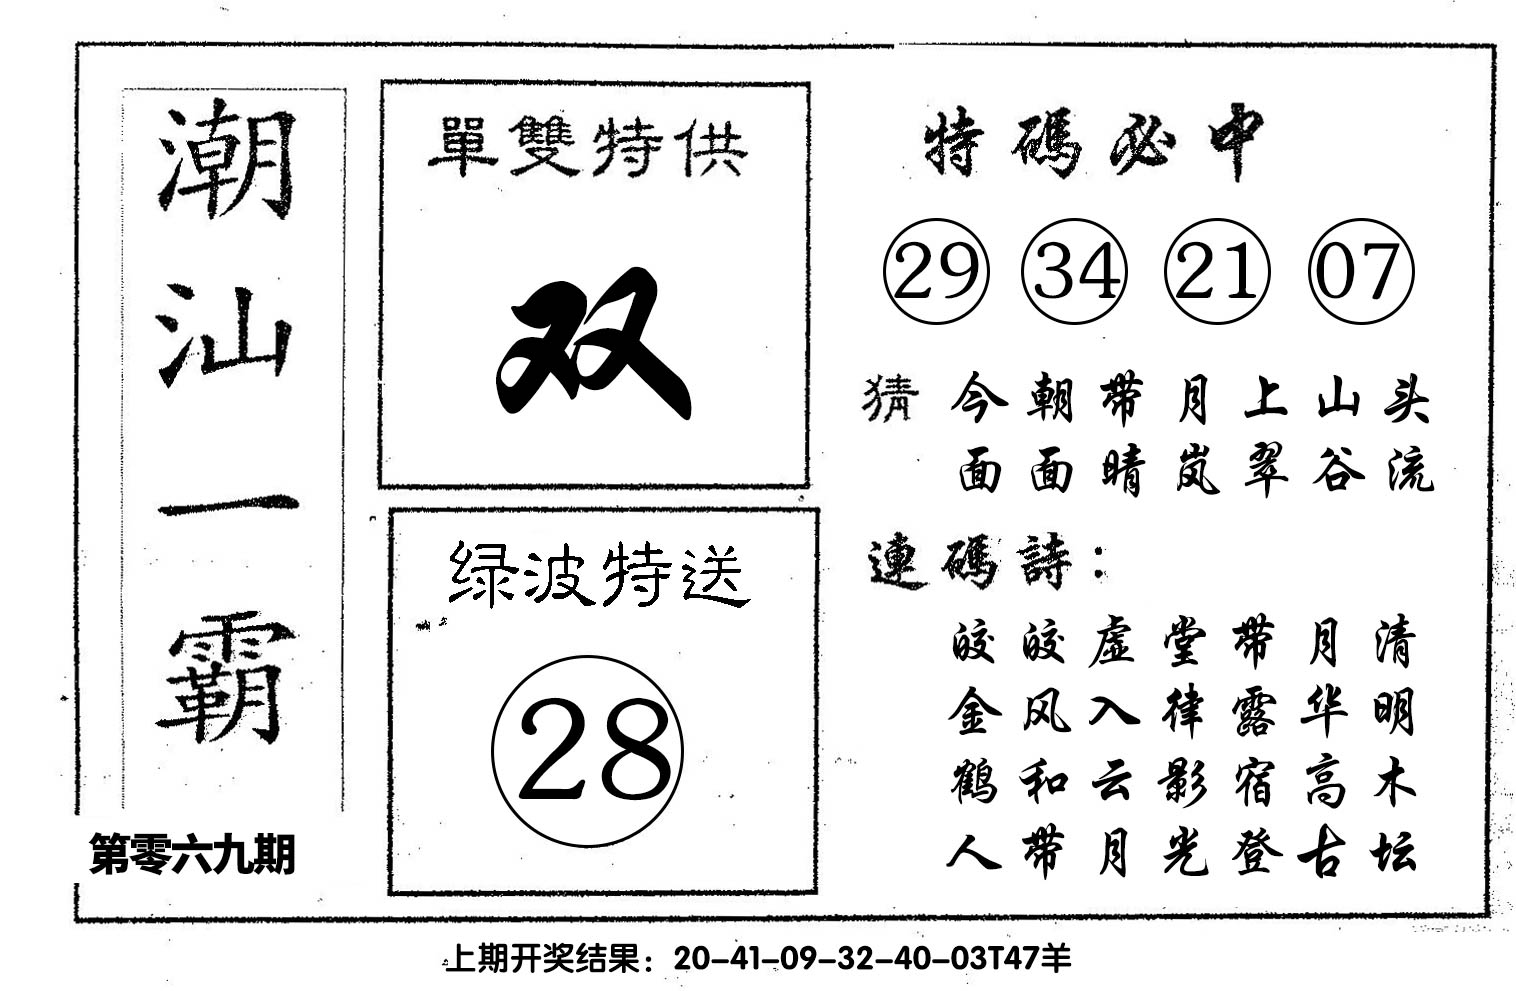 潮汕一霸
第零六九期
單雙特供
双
绿波特送
28
特碼必中
29 34 21 07
猜 今朝带月上山头
面面晴岚翠谷流
連碼詩：
皎皎虚堂带月清
金风入律露华明
鹤和云影宿高木
人带月光登古坛
上期开奖结果：20-41-09-32-40-03T47羊